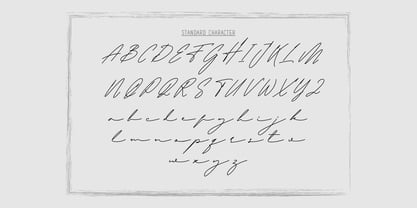 STANDARD CHARACTER
ABCDEFGHIJKLM
NOPQRSTUVWXYZ
abcdefghijk
lmnopqrstuv
wxyz